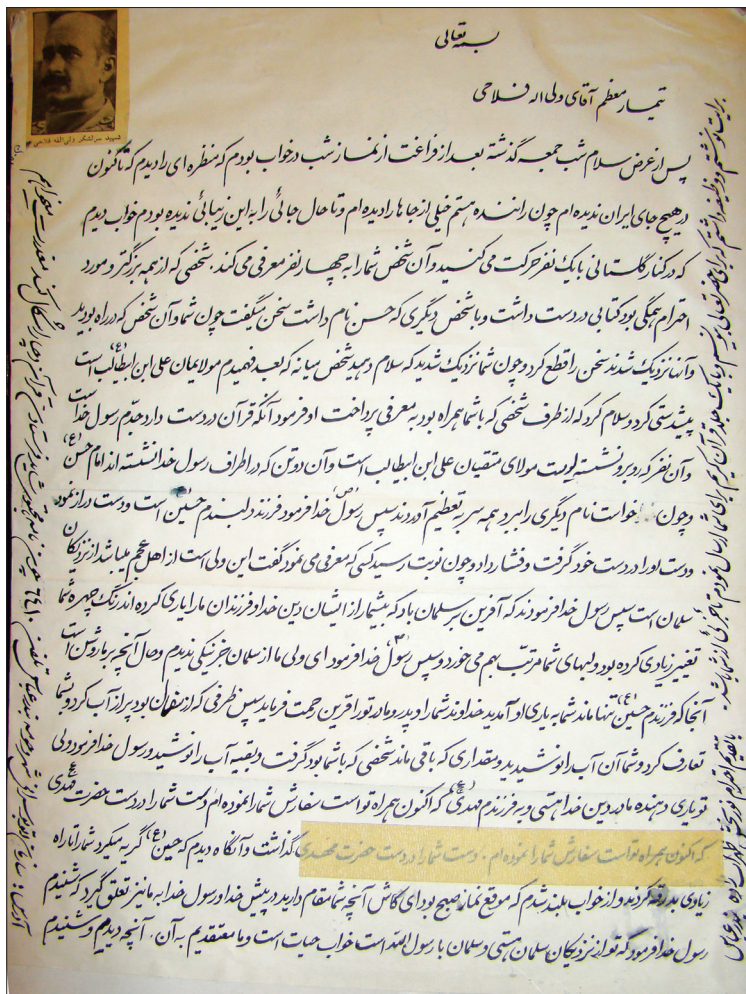 بسمه تعالی
تیمسار معظم آقای ولی اله فلاحی
شهید سرلشگر ولی‌الله فلاحی
پس از عرض سلام شب جمعه گذشته بعد از فراغت از نماز شب در خواب بودم که منظره ای را دیدم که تاکنون
در هیچ جای ایران ندیده ام چون راننده هستم خیلی از جاها را دیده ام و تا حال جائی را به این زیبائی ندیده بودم خواب دیدم
که در کنار گلستانی با یک نفر حرکت می کنید و آن شخص شما را به چهار نفر معرفی می کند. شخصی که از همه بزرگتر و مورد
احترام همگی بود کتابی در دست داشت و با شخص دیگری که حسن نام داشت سخن میگفت چون شما و آن شخص که در راه بودید
و آنها نزدیک شدند سخن را قطع کرد و چون شما نزدیک شدید که سلام دهید شخص میانه که بعد فهمیدم مولایمان علی ابن ابیطالب (ع) است
پیشدستی کرد و سلام کرد که از طرف شخصی که با شما همراه بود به معرفی پرداخت او فرمود آنکه قرآن در دست دارد جدّم رسول خدا است
و آن نفر که روبرو نشسته اوست مولای متقیان علی ابن ابیطالب است و آن دو تن که در اطراف رسول خدا نشسته اند امام حسن (ع)
و چون خواست نام دیگری را ببرد همه سر به تعظیم آوردند سپس رسول (ص) خدا فرمود فرزند دلبندم حسین است و دست دراز نمود
و دست او را در دست خود گرفت و فشار داد و چون نوبت رسید کسی که معرفی می نمود گفت این ولی است از اهل عجم میباشد از نزدیکان
سلمان است سپس رسول خدا فرمودند که آفرین بر سلمان باد که بیشمار از ایشان دین خدا و فرزندان ما را یاری کرده اند رنگ چهره شما
تغییر زیادی کرده بود و لبهای شما مرتب بهم می خورد و سپس رسول (ص) خدا فرمود ای ولی ما از سلمان جز نیکی ندیدم و حال آنچه بر ما روشن است
آنجا که فرزندم حسین (ع) تنها ماند شما به یاری او آمدید خداوند شما را و پدر و مادر تو را قرین رحمت فرماید سپس ظرفی که از بود پر از آب کرد و بشما
تعارف کرد و شما آن آب را نوشیدید و مقداری که باقی ماند شخصی که با شما بود گرفت و بقیه آب را نوشید و رسول خدا فرمود ولی
تو یاری دهنده ما در دین خدا هستی و به فرزندم مهدی (ع) که اکنون همراه تو است سفارش شما را نموده ام دست شما را در دست حضرت مهدی (ع)
که اکنون همراه تو است سفارش شما را نموده ام. دست شما را در دست حضرت مهدی گذاشت و آنگاه دیدم که حسین (ع) گریه میکرد شما را تا راه
زیادی بدرقه کردند و از خواب بلند شدم که موقع نماز صبح بود ای کاش آنچه شما مقام دارید در پیش خدا و رسول خدا به ما نیز تعلق گیرد که شنیدم
رسول خدا فرمود که تو از نزدیکان سلمان هستی و سلمان با رسول الله است خواب حیات است و ما معتقدیم به آن. آنچه دیدم و شنیدم
برایت نوشتم و وظیفه داشتم که برای حضرتعالی بنویسم و با یک جلد قرآن کریم برای شما ارسال نمودم تا جزئی از شما باشد.